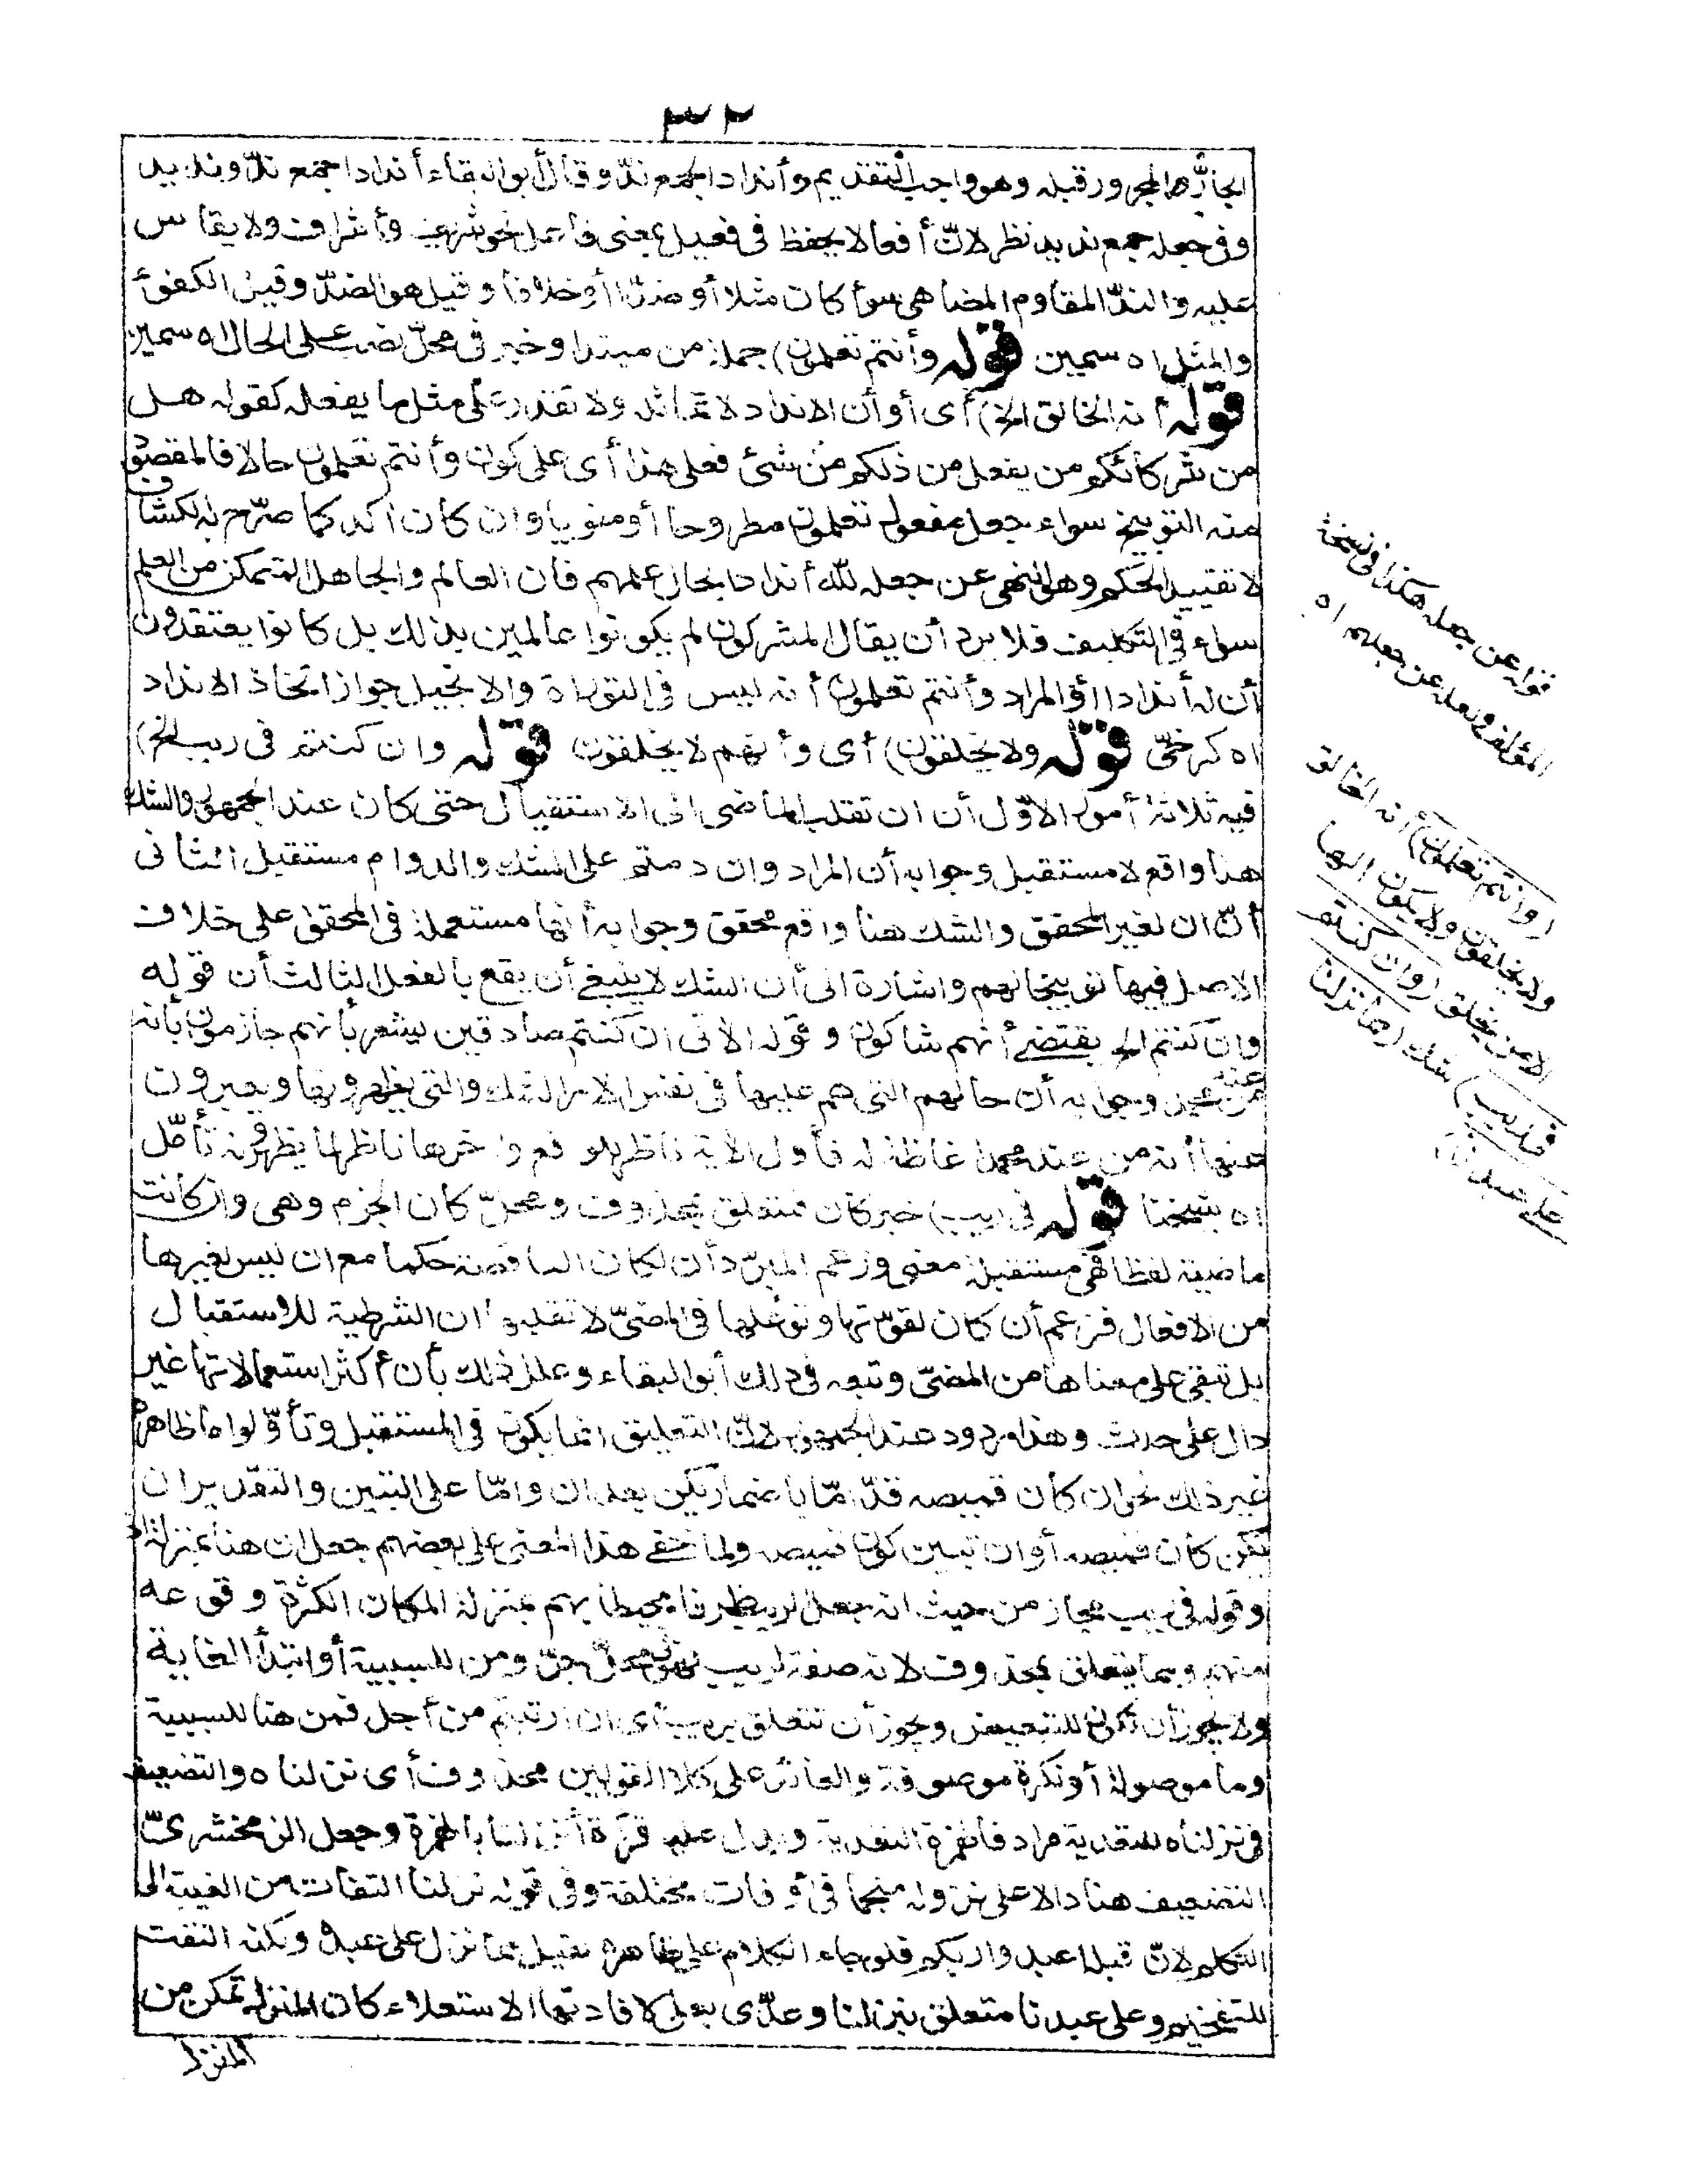 ٣٢
الجارّ والمجرور قبله وهو واجب التقديم وأندادا جمع ندّ وقال أبو البقاء أندادا جمع ندّ ونديد
وفى جعله جمع نديد نظر لانّ أفعالا يحفظ فى فعيل بمعنى فاعل نحو شريف وأشراف ولا يقاس
عليه والندّ المقاوم المضاهى سواء كان مثلا أو ضدّا أو خلافا وقيل هو الضدّ وقيل الكفؤ
والمثل اه سمين قوله وأنتم تعلمون) جملة من مبتدا وخبر فى محلّ نصب على الحال اه سمين
قوله أنه الخالق الخ) أى أو أن الانداد لا تماثله ولا تقدر على مثل ما يفعله كقوله هل
من شركائكم من يفعل من ذلكم من شئ فعلى هذا أى على كون وأنتم تعلمون حالا فالمقصود
منه التوبيخ سواء جعل مفعول تعلمون مطروحا أو منويا وان كان آكد كما صرّح به الكشاف
لا تقييد الحكم وهو النهى عن جعله لله أندادا بحال علمهم فان العالم والجاهل المتمكن من العلم
سواء فى التكليف فلا يرد أن يقال المشركون لم يكونوا عالمين بذلك بل كانوا يعتقدون
أن له أندادا أو المراد وأنتم تعلمون أنه ليس فى التوراة والانجيل جواز اتخاذ الانداد
اه كرخىّ قوله ولا يخلقون) أى وأنهم لا يخلقون قوله وان كنتم فى ريب الخ)
فيه ثلاثة أمور الاوّل أن ان تقلب الماضى الى الاستقبال حتى كان عند الجمهور والشك
هنا واقع لا مستقبل وجوابه أن المراد وان دمتم على الشك والدوام مستقبل الثانى
أنّ ان لغير المحقق والشك هنا واقع محقق وجوابه أنها مستعملة فى المحقق على خلاف
الاصل فيها توبيخا لهم واشارة الى أن الشك لا ينبغى أن يقع بالفعل الثالث أن قوله
وان كنتم الخ يقتضى أنهم شاكون وقوله الآتى ان كنتم صادقين يشعر بأنهم جازمون بأنه
من عند وجوابه أن حالهم التى هم عليها فى نفس الامر الشك والتى يظهرونها ويعبرون
عنها أنه من عند محمد اغاظة له فأول الآية ناظر للواقع وآخرها ناظر لما يظهرونه تأمّل
اه شيخنا قوله فى ريب) خبر كان فتتعلق بمحذوف ومحلّ كان الجزم وهى وان كانت
ماضية لفظا فهى مستقبلة معنى وزعم المبرّد أن لكان الناقصة حكما مع ان ليس لغيرها
من الافعال فزعم أن كان لقوّتها وتوغلها فى المضىّ لا تقلبها ان الشرطية للاستقبال
بل تبقى على معناها من المضىّ وتبعه فى ذلك أبو البقاء وعلل ذلك بأن أكثر استعمالاتها غير
دال على حدث وهذا مردود عند الجمهور لانّ التعليق انما يكون فى المستقبل وتأوّلوا ما ظاهره
غير ذلك نحو ان كان قميصه قدّ امّا باضمار يكن بعد ان وامّا على التبين والتقدير ان
يكن كان قميصه أو ان تبين كون قميصه ولما خفى هذا المعنى على بعضهم جعل ان هنا بمنزلة اذ
وقوله فى ريب مجاز من حيث انه جعل الريب ظرفا محيطا بهم بمنزلة المكان لكثرة وقوعه
منهم ومما يتعلق بمحذوف لانه صفة لريب فهو فى محلّ جرّ ومن للسببية أو ابتداء الغاية
ولا يجوز أن تكون للتبعيض ويجوز أن تتعلق بريب أى ان ارتبتم من أجل فمن هنا للسببية
وما موصولة أو نكرة موصوفة والعائد على كلا القولين محذوف أى نزلناه والتضعيف
فى نزلناه للتعدية مرادفا لهمزة التعدية ويدل عليه قراءة أنزلنا بالهمزة وجعل الزمخشرىّ
التضعيف هنا دالا على نزوله منجما فى أوقات مختلفة وفى قوله نزلنا التفات من الغيبة الى
التكلم لانّ قبله اعبدوا ربكم فلو جاء الكلام على ظاهره لقيل مما نزل على عبده ولكنه التفت
للتفخيم وعلى عبدنا متعلق بنزلنا وعدّى بعلى لافادتها الاستعلاء كان المنزل تمكن من
المنزل
قوله عن جعله هكذا فى نسخة
المؤلف ولعله عن جعلهم اه
(وأنتم تعلمون) أنه الخالق
ولا يخلقون ولا يكون الها
الا من يخلق (وان كنتم
فى ريب) شك (مما نزلنا
على عبدنا)